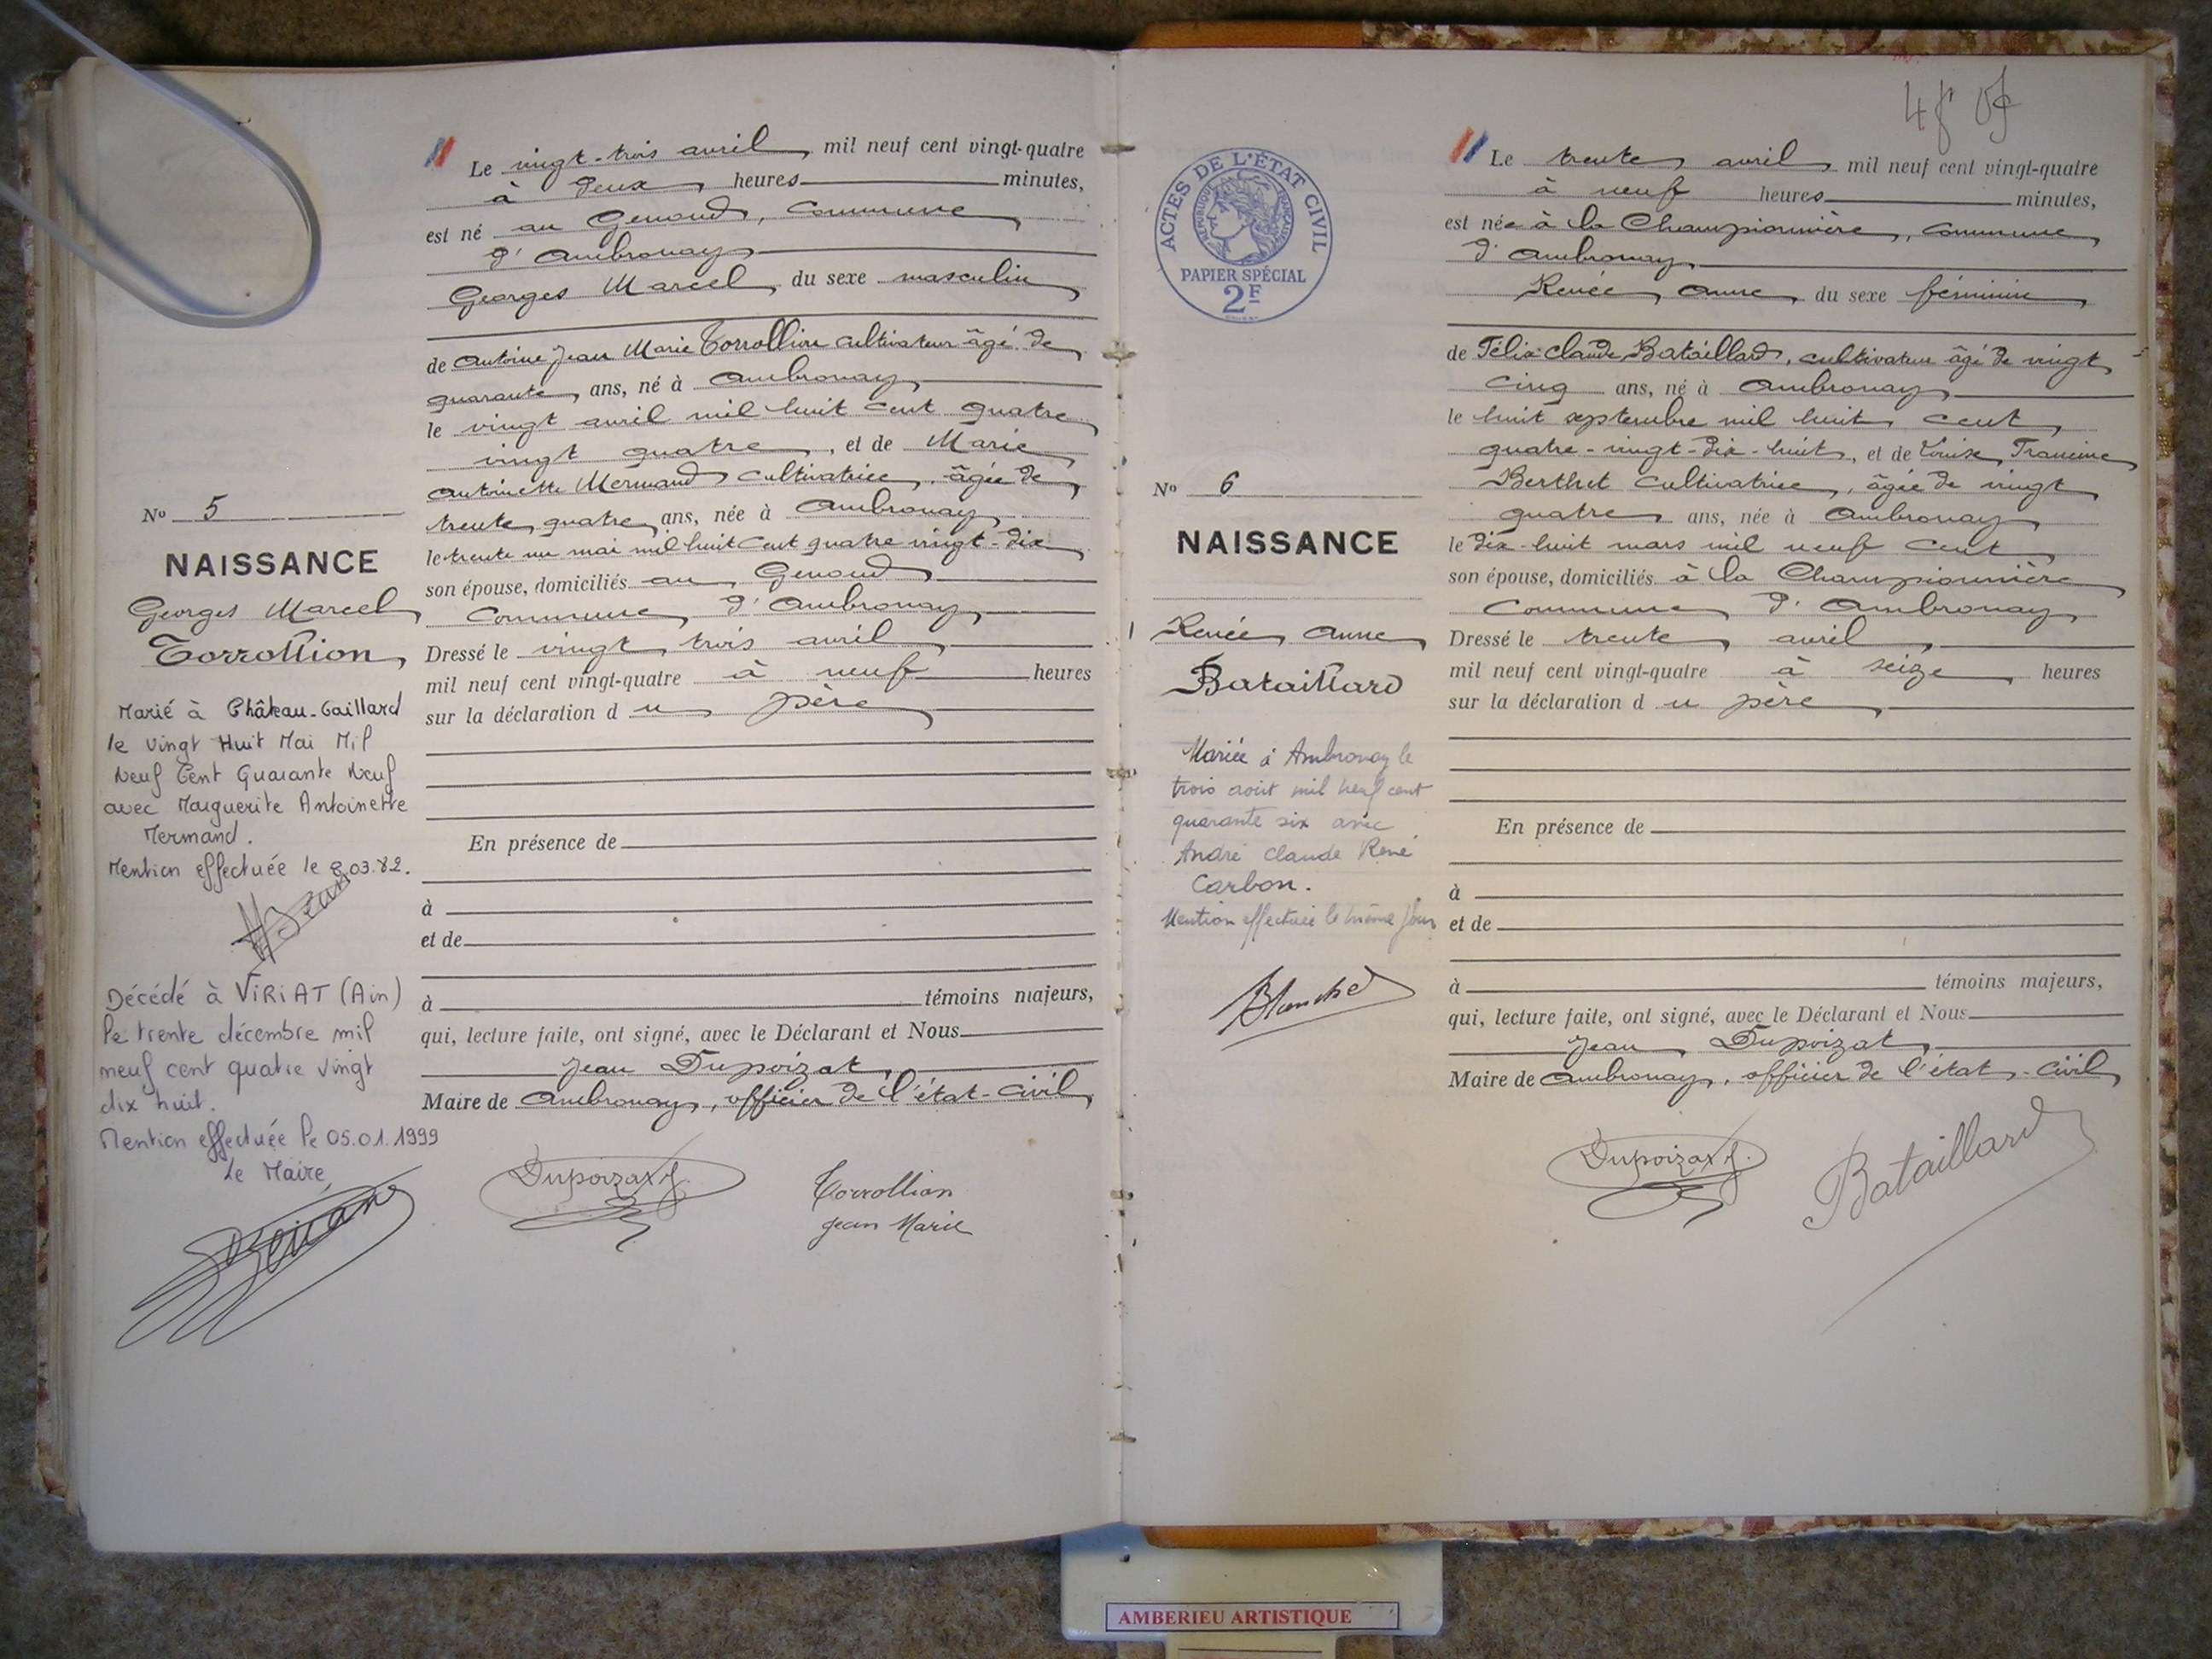 Le vingt-trois avril mil neuf cent vingt-quatre
à deux heures minutes,
est né au Genoud, commune
d'Ambronay
Georges Marcel du sexe masculin
de Antoine Jean Marie Torrollion cultivateur âgé de
quarante ans, né à Ambronay
le vingt avril mil huit cent quatre
vingt quatre, et de Marie
Antoinette Mermand cultivatrice, âgée de
trente quatre ans, née à Ambronay
le trente un mai mil huit cent quatre vingt-dix
son épouse, domiciliés au Genoud
commune d'Ambronay
Dressé le vingt trois avril
mil neuf cent vingt-quatre à neuf heures
sur la déclaration du père
En présence de
à
et de
à témoins majeurs,
qui, lecture faite, ont signé, avec le Déclarant et Nous
Jean Dupoizat,
Maire de Ambronay, officier de l'état-civil
Dupoizat J.
Torrollion
Jean Marie
No 5
NAISSANCE
Georges Marcel
Torrollion
Marié à Château-Gaillard
le vingt Huit Mai Mil
Neuf Cent Quarante Neuf
avec Marguerite Antoinette
Mermand.
Mention effectuée le 8.03.82.
Décédé à VIRIAT (Ain)
le trente décembre mil
neuf cent quatre vingt
dix huit.
Mention effectuée le 05.01.1999
Le Maire,
ACTES DE L'ÉTAT CIVIL
RÉPUBLIQUE FRANÇAISE
PAPIER SPÉCIAL
2F
Le trente avril mil neuf cent vingt-quatre
à neuf heures minutes,
est née à la Championnière, commune
d'Ambronay
Renée Anne du sexe féminin
de Félix Claude Bataillard, cultivateur âgé de vingt
cinq ans, né à Ambronay
le huit septembre mil huit cent
quatre-vingt-dix-huit, et de Louise Francine
Berthet cultivatrice, âgée de vingt
quatre ans, née à Ambronay
le dix-huit mars mil neuf cent
son épouse, domiciliés à la Championnière
commune d'Ambronay
Dressé le trente avril
mil neuf cent vingt-quatre à seize heures
sur la déclaration du père
En présence de
à
et de
à témoins majeurs,
qui, lecture faite, ont signé, avec le Déclarant et Nous
Jean Dupoizat,
Maire de Ambronay, officier de l'état-civil
Dupoizat J.
Bataillard
No 6
NAISSANCE
Renée Anne
Bataillard
Mariée à Ambronay le
trois août mil neuf cent
quarante six avec
André Claude René
Carbon.
Mention effectuée le même jour
Blanchet
AMBERIEU ARTISTIQUE